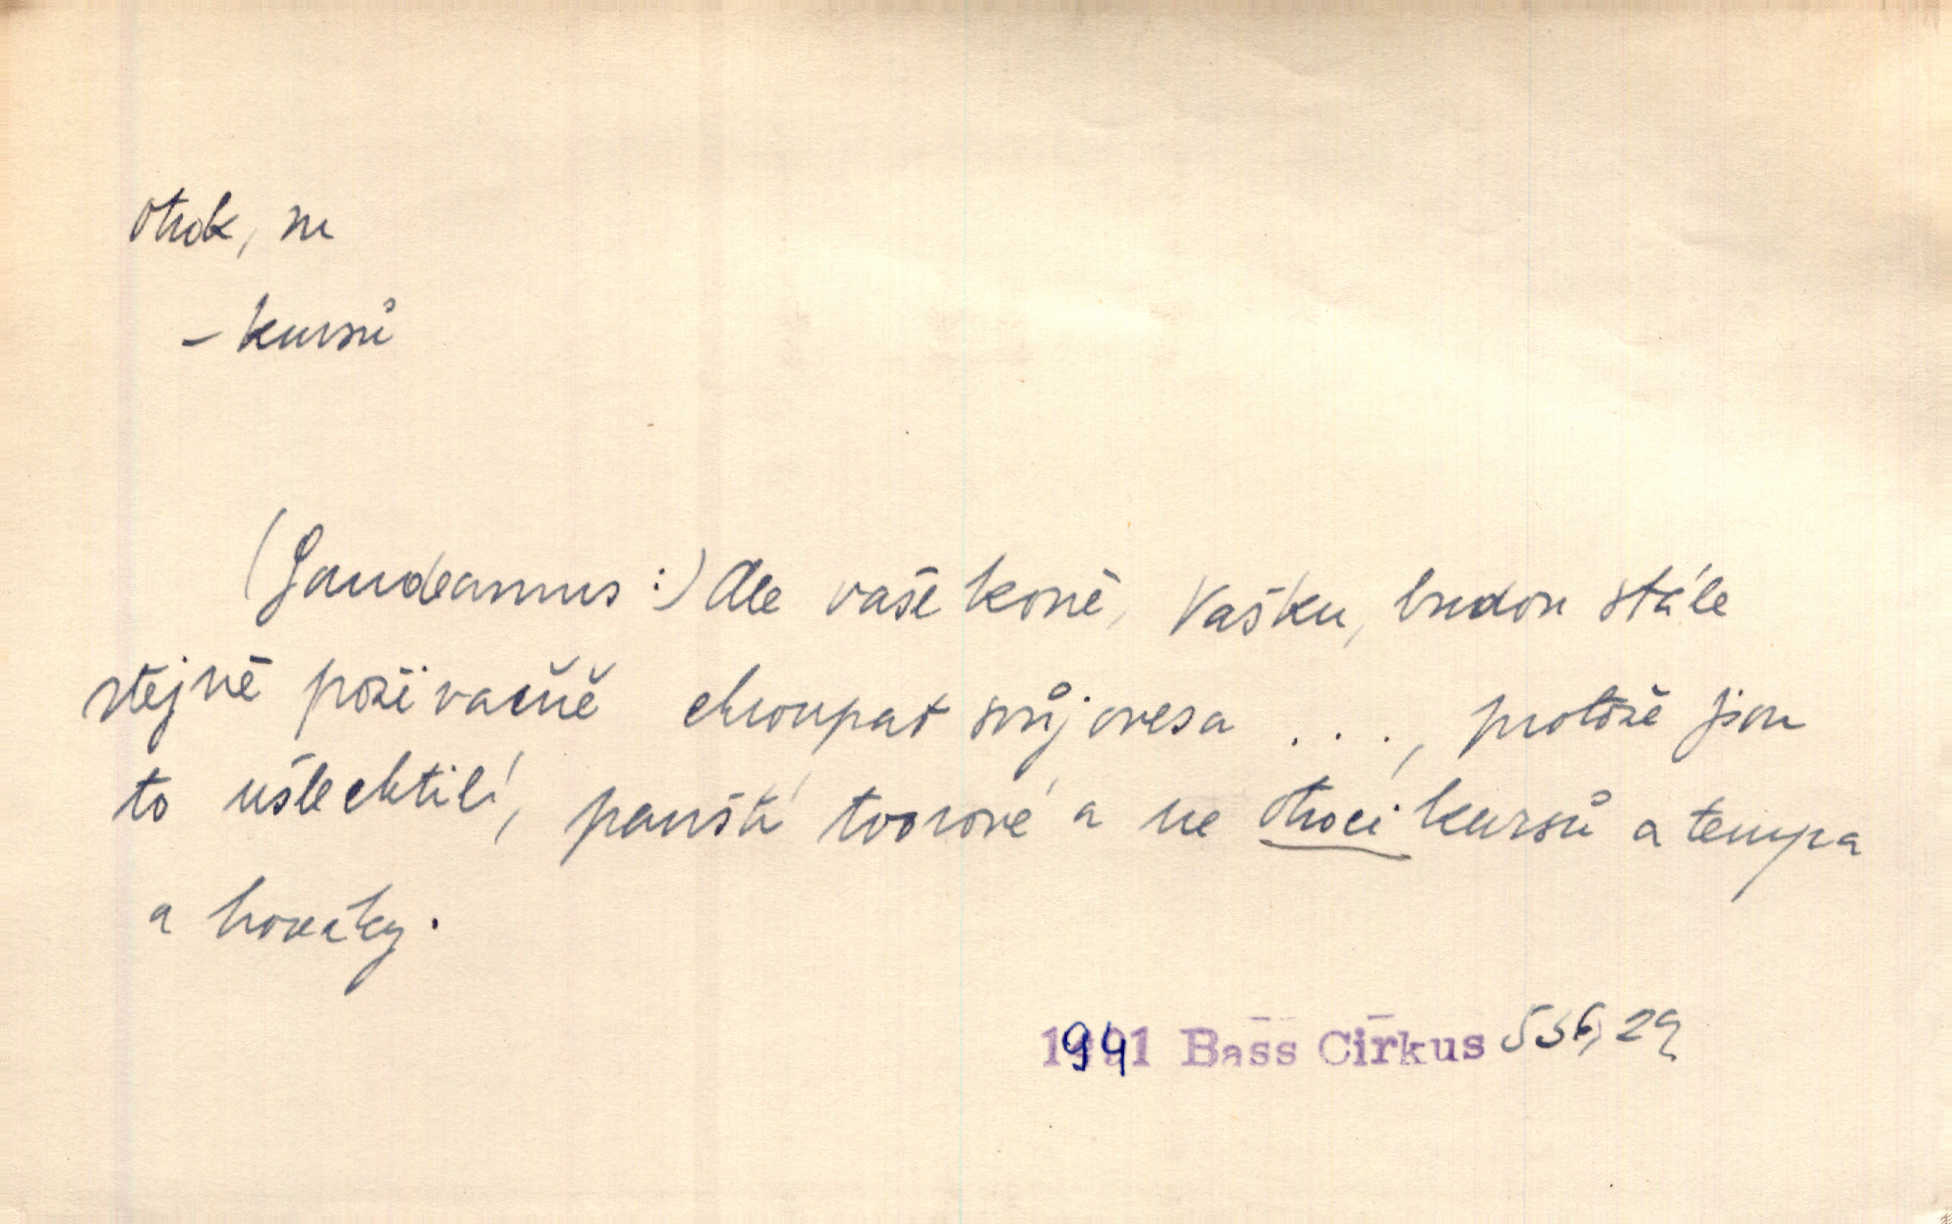 otrok, m
– kursů
(Gaudeamus:) Ale vaše koně, Vašku, budou stále
stejně poživačně chroupat svůj ovesa . . . , protože jsou
to ušlechtilí, panští tvorové a ne otroci kursů a tempa
a honičky.
1941 Bass Cirkus 556, 29